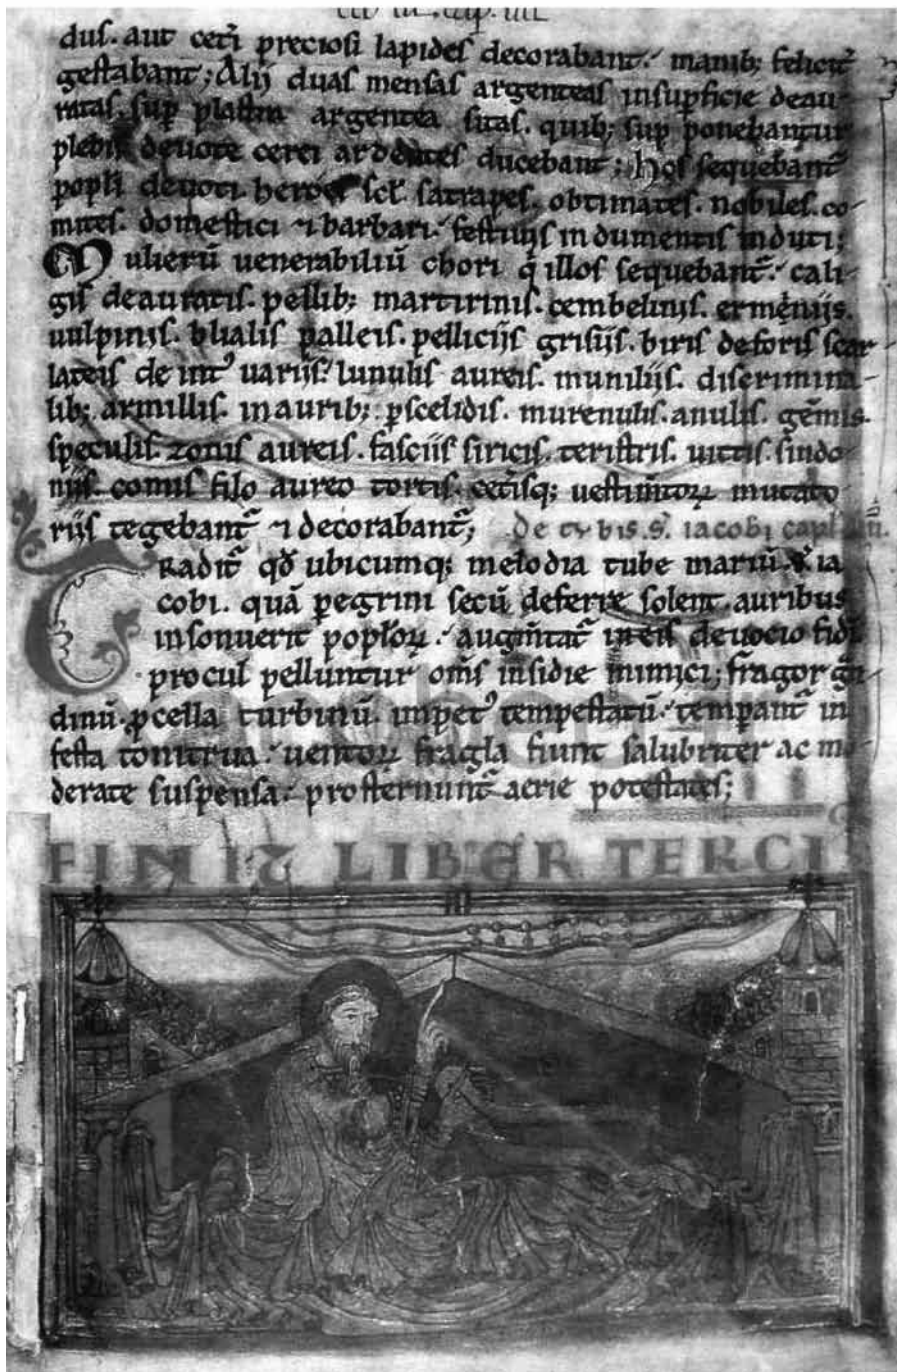 dus. aut cet̃i preciosi lapides decorabant. manib; felicit̃
gestabant; Alij duas mensas argenteas insuꝑficie deau-
ratas. suꝑ plastra argentea sitas. quib; suꝑ ponebantur
plebis deuote cerei ardentes ducebant; hos sequebant̃
popli deuoti. heroes scł. satrapes. obtimates. nobiles. co-
mites. domestici ⁊ barbari. festiuis indumentis induti;
Mulierũ uenerabiliũ chori q̇ illos sequebant̃. cali-
gis deauratis. pellib; martirinis. cembelinis. ermẽnijs.
uulpinis. blialis palleis. pellicijs grisijs. biris deforis scar
lateis de intꝰ uarijs. lunulis aureis. munilijs. discrimina-
lib; armillis. inaurib; ꝑscelidis. murenulis. anulis. gẽmis.
speculis. zonis aureis. fascijs siricis. teristris. uittis. sindo-
nijs. comis filo aureo tortis. cet̃isq; uestim̃toꝝ mutato
rijs tegebant̃ ⁊ decorabant̃; De tubis. s. iacobi
Tradit̃ qđ ubicumq; melodia tube mariũ s̃. ia
cobi. quã ꝑegrini secũ deferre solent. auribus
insonuerit popłoꝝ. augm̃tat̃ in eis deuocio fidei
procul pelluntur om̃s insidie inimici; fragor g̃n-
dinũ. ꝓcella turbinũ. impetꝰ tempestatũ. tempant̃ in
festa tonitrua. uentoꝝ fragla fiunt salubriter ac mo
derate suspensa. prosternunt̃ aerie potestates;
FINIT LIBER TERCI